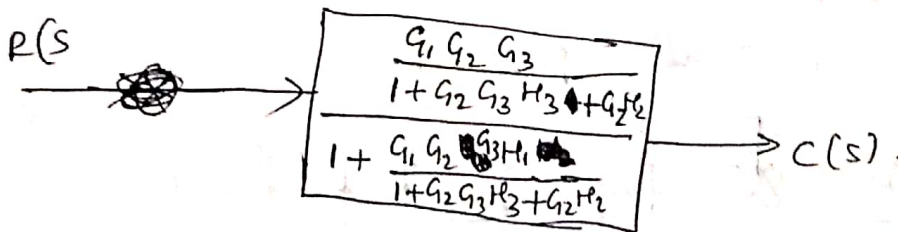 R(S
G₁ G₂ G₃
1 + G₂ G₃ H₃ + G₂H₂
1 + G₁ G₂ G₃H₁
1+G₂G₃H₃+G₂H₂
C(S).